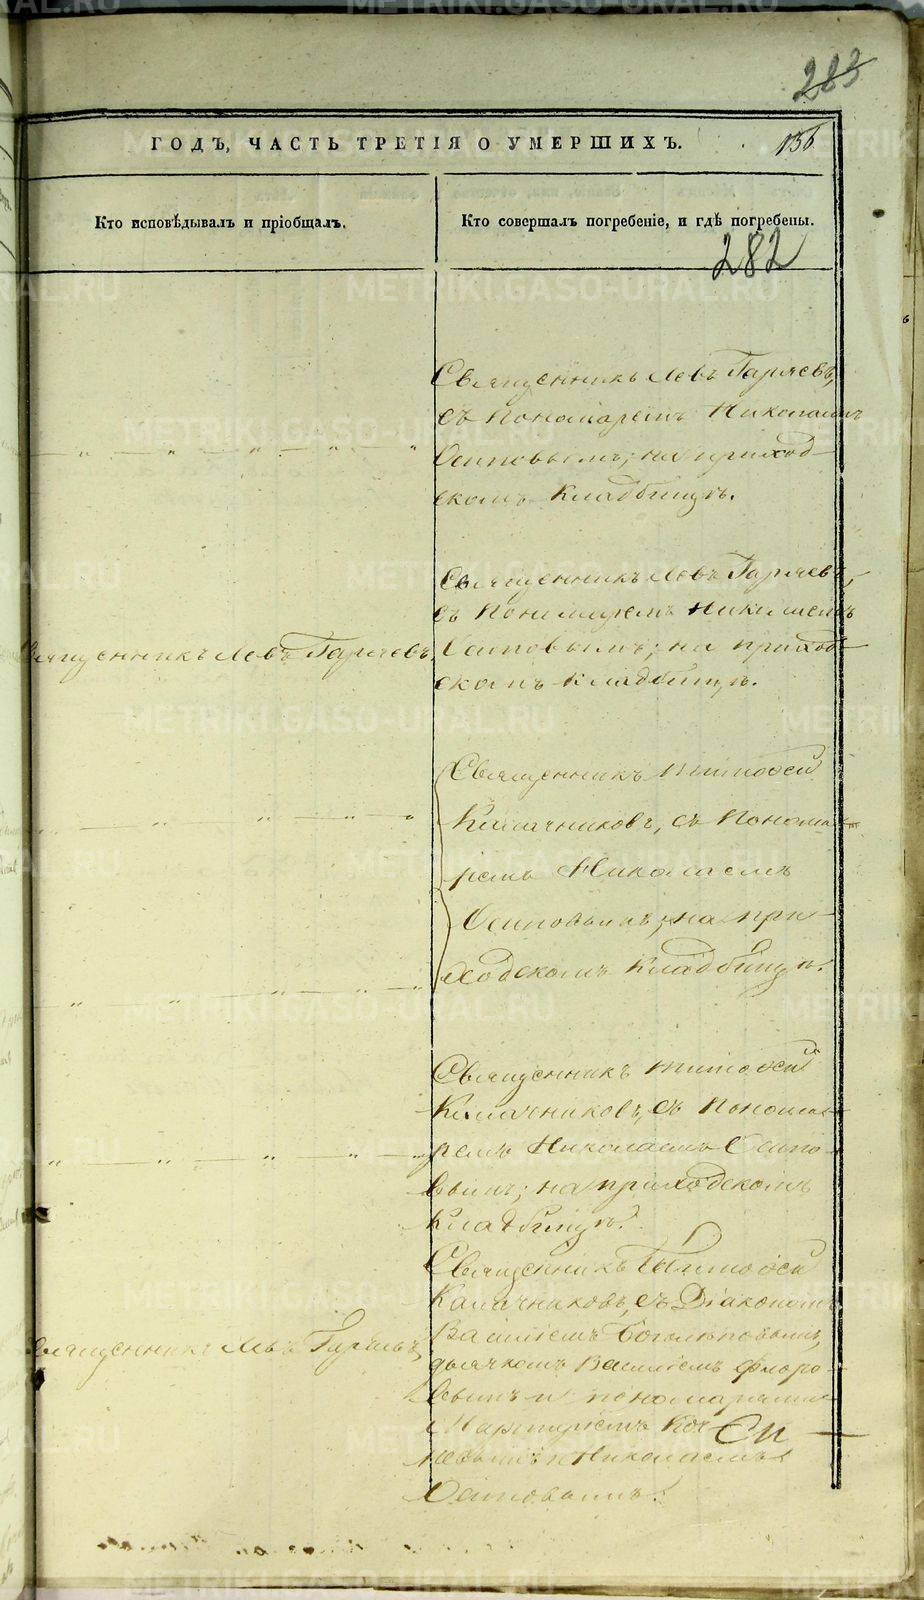 283
ГОДЪ, ЧАСТЬ ТРЕТІЯ О УМЕРШИХЪ.
156
Кто исповѣдывалъ и пріобщалъ.
Кто совершалъ погребеніе, и гдѣ погребены.
282
Священникъ Левъ Гаряевъ,
съ Пономаремъ Николаемъ
Осиповымъ; на приход-
скомъ Кладбищѣ.
Священникъ Левъ Гаряевъ,
Священникъ Левъ Гаряевъ,
съ Пономаремъ Николаемъ
Осиповымъ; на приход-
скомъ Кладбищѣ.
Священникъ Тимофей
Калачниковъ, съ Понома-
ремъ Николаемъ
Осиповымъ; на при-
ходскомъ Кладбищѣ.
Священникъ Тимофей
Калачниковъ, съ Понома-
ремъ Николаемъ Осипо-
вымъ; на приходскомъ
Кладбищѣ.
Священникъ Левъ Гаряевъ,
Священникъ Тимофей
Калачниковъ, съ Діакономъ
Василіемъ Боголѣповымъ,
дьячкомъ Василіемъ Флоро-
вымъ и пономарями
и Николаемъ
Осиповымъ.
METRIKI.GASO-URAL.RU